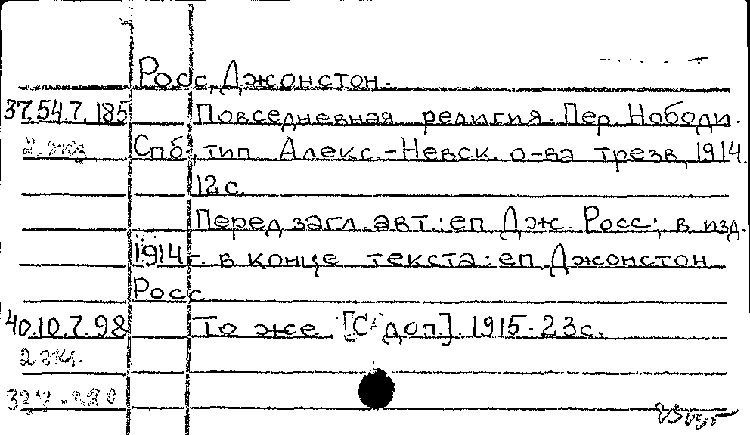 Росс, Джонстон.
37.54.7.185 Повседневная религия. Пер. Нободи.
2 экз. Спб, тип. Алекс.-Невск. о-ва трезв., 1914.
12 с.
Перед загл. авт.: еп. Дж. Росс; в изд.
1914 г. в конце текста: еп. Джонстон
Росс.
40.10.7.98 То же. [С доп.]. 1915. 23 с.
2 экз.